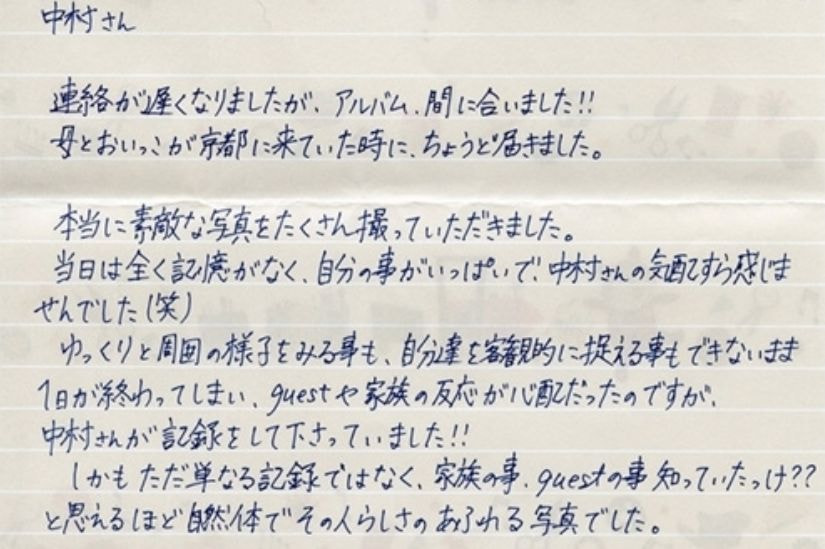 中村さん
連絡が遅くなりましたが、アルバム、間に合いました!!
母とおいっこが京都に来ていた時に、ちょうど届きました。
本当に素敵な写真をたくさん撮っていただきました。
当日は全く記憶がなく、自分の事がいっぱいで、中村さんの気配すら感じま
せんでした(笑)
ゆっくりと周囲の様子をみる事も、自分達を客観的に捉える事もできないまま
1日が終わってしまい、guestや家族の反応が心配だったのですが、
中村さんが記録をして下さっていました!!
しかもただ単なる記録ではなく、家族の事、guestの事知っていたっけ??
と思えるほど自然体でその人らしさのあふれる写真でした。